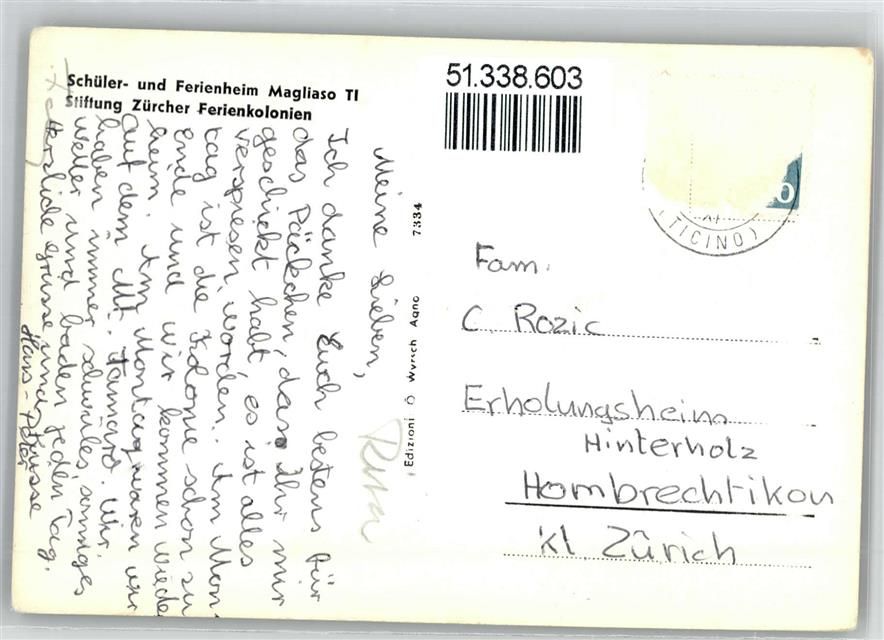 Schüler- und Ferienheim Magliaso TI
Stiftung Zürcher Ferienkolonien
51.338.603
Meine Lieben,
Ich danke Euch bestens für
das Päckchen, dass Ihr mir
geschickt habt, es ist alles
verspiesen worden. Am Mon-
tag ist die Kolonie schon zu
Ende und wir kommen wieder
heim. Am Montag waren wir
auf dem Mt. Tamaro. Wir
haben immer schwüles, sonniges
Wetter und baden jeden Tag.
Herzliche Grüsse und Küsse
Hans-Peter
Edizioni Wyrsch Agno
7334
(TICINO)
0
Fam.
C. Rozic
Erholungsheim
Hinterholz
Hombrechtikon
Kt. Zürich